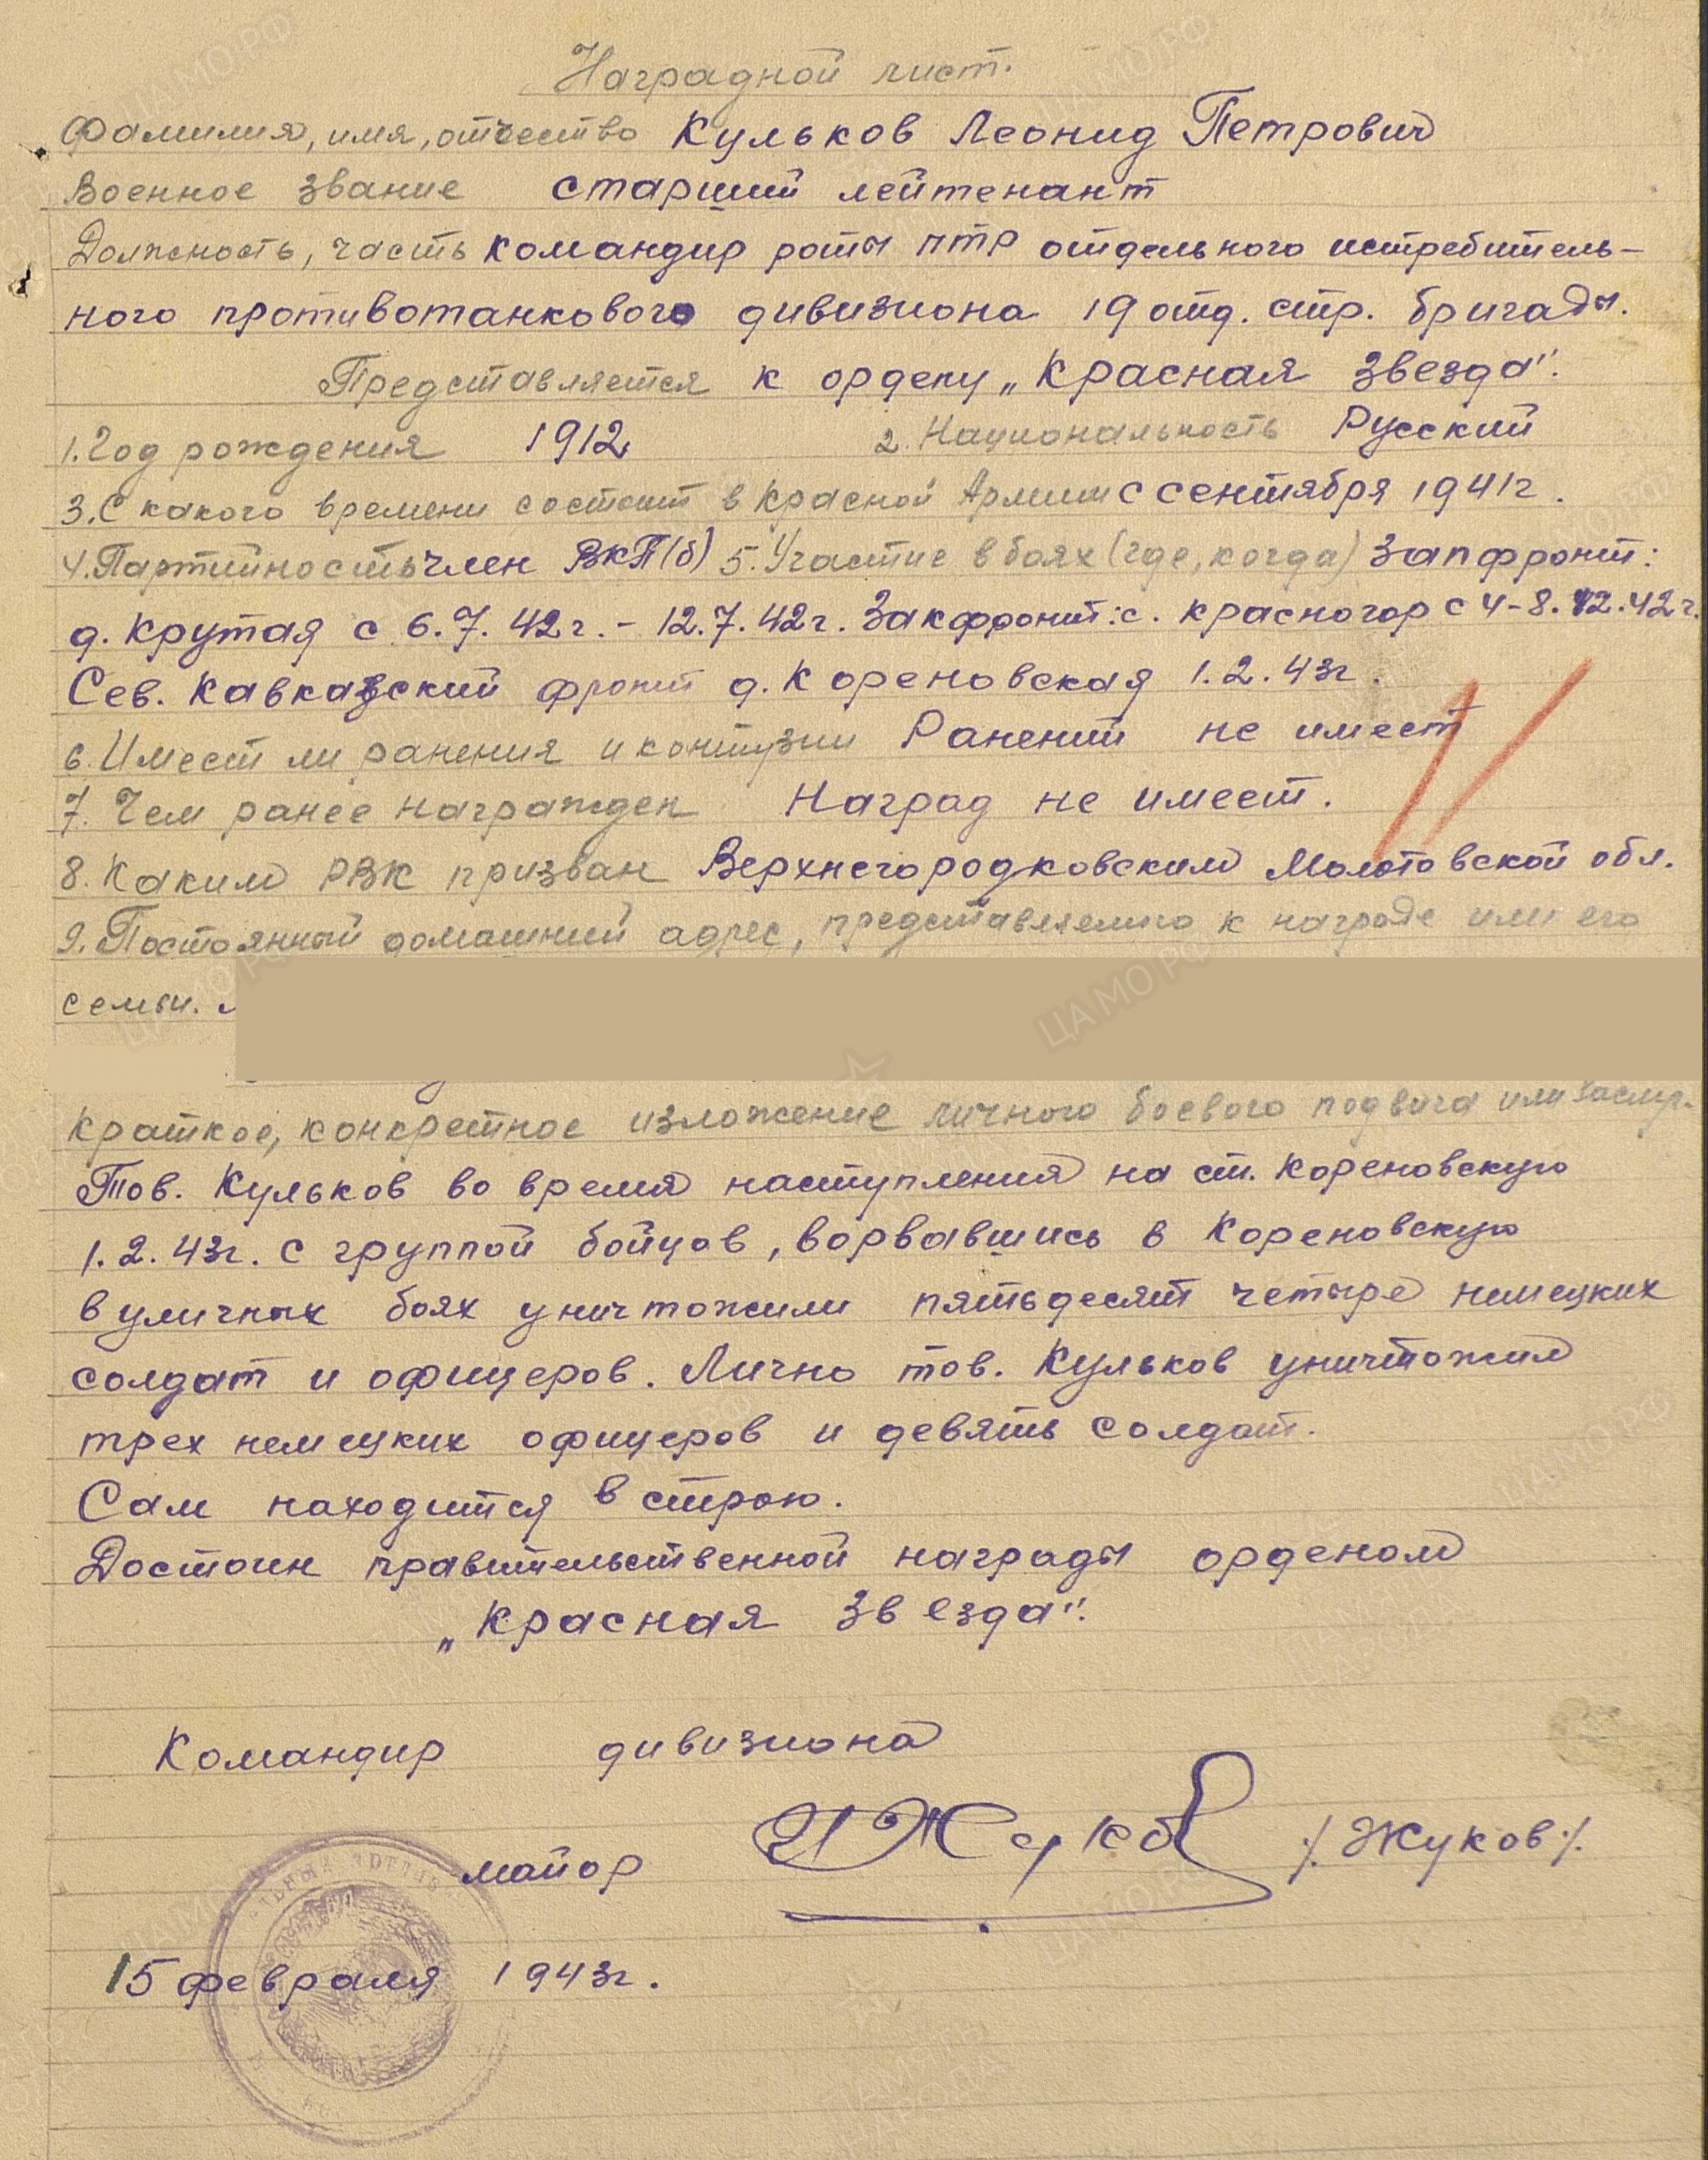 Наградной лист.
Фамилия, имя, отчество Кульков Леонид Петрович
Военное звание старший лейтенант
Должность, часть командир роты ПТР отдельного истребитель-
ного противотанкового дивизиона 19 отд. стр. бригады.
Представляется к ордену „Красная Звезда".
1. Год рождения 1912 2. Национальность Русский
3. С какого времени состоит в Красной Армии с сентября 1941г.
4. Партийность член ВКП(б) 5. Участие в боях (где, когда) Запфронт:
д. Крутая с 6.7.42г. - 12.7.42г. Закфронт: с. Красногор с 4-8.12.42г.
Сев. Кавказский фронт д. Кореновская 1.2.43г.
6. Имеет ли ранения и контузии Ранений не имеет
7. Чем ранее награжден Наград не имеет.
8. Каким РВК призван Верхнегородковским Молотовской обл.
9. Постоянный домашний адрес, представляемого к награде или его
семьи.
Краткое, конкретное изложение личного боевого подвига или заслуг.
Тов. Кульков во время наступления на ст. Кореновскую
1.2.43г. с группой бойцов, ворвавшись в Кореновскую
в уличных боях уничтожили пятьдесят четыре немецких
солдат и офицеров. Лично тов. Кульков уничтожил
трех немецких офицеров и девять солдат.
Сам находится в строю.
Достоин правительственной награды орденом
„Красная Звезда".
Командир дивизиона
майор ИЖуков /Жуков/.
15 февраля 1943г.
ЦАМО.РФ